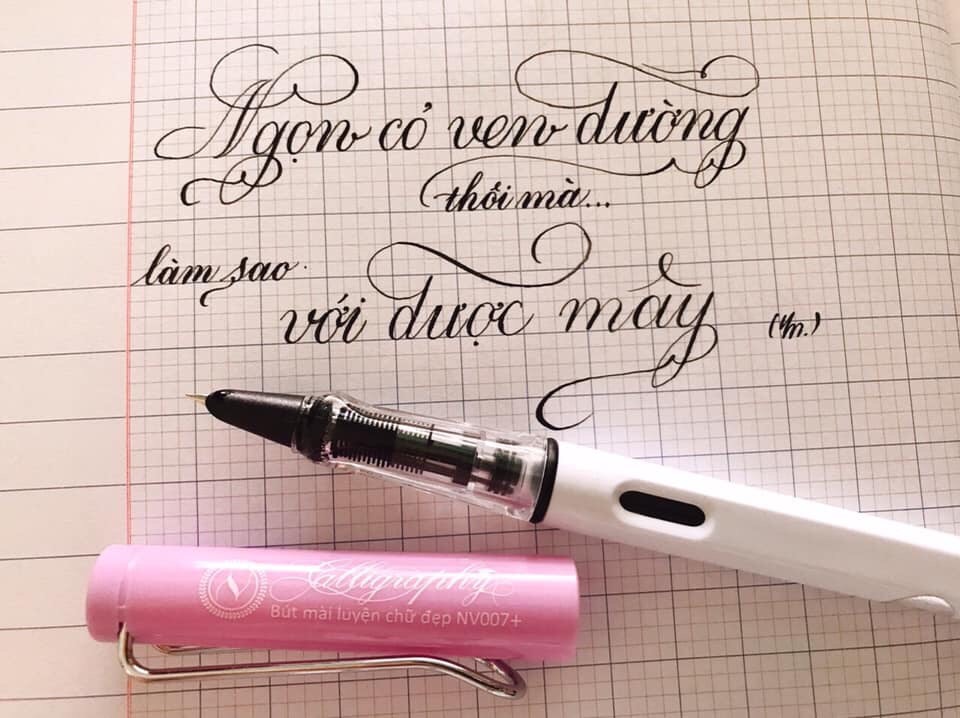 Ngọn cỏ ven đường
thôi mà...
làm sao
với được mây
Calligraphy
V
Bút mài luyện chữ đẹp NV007+